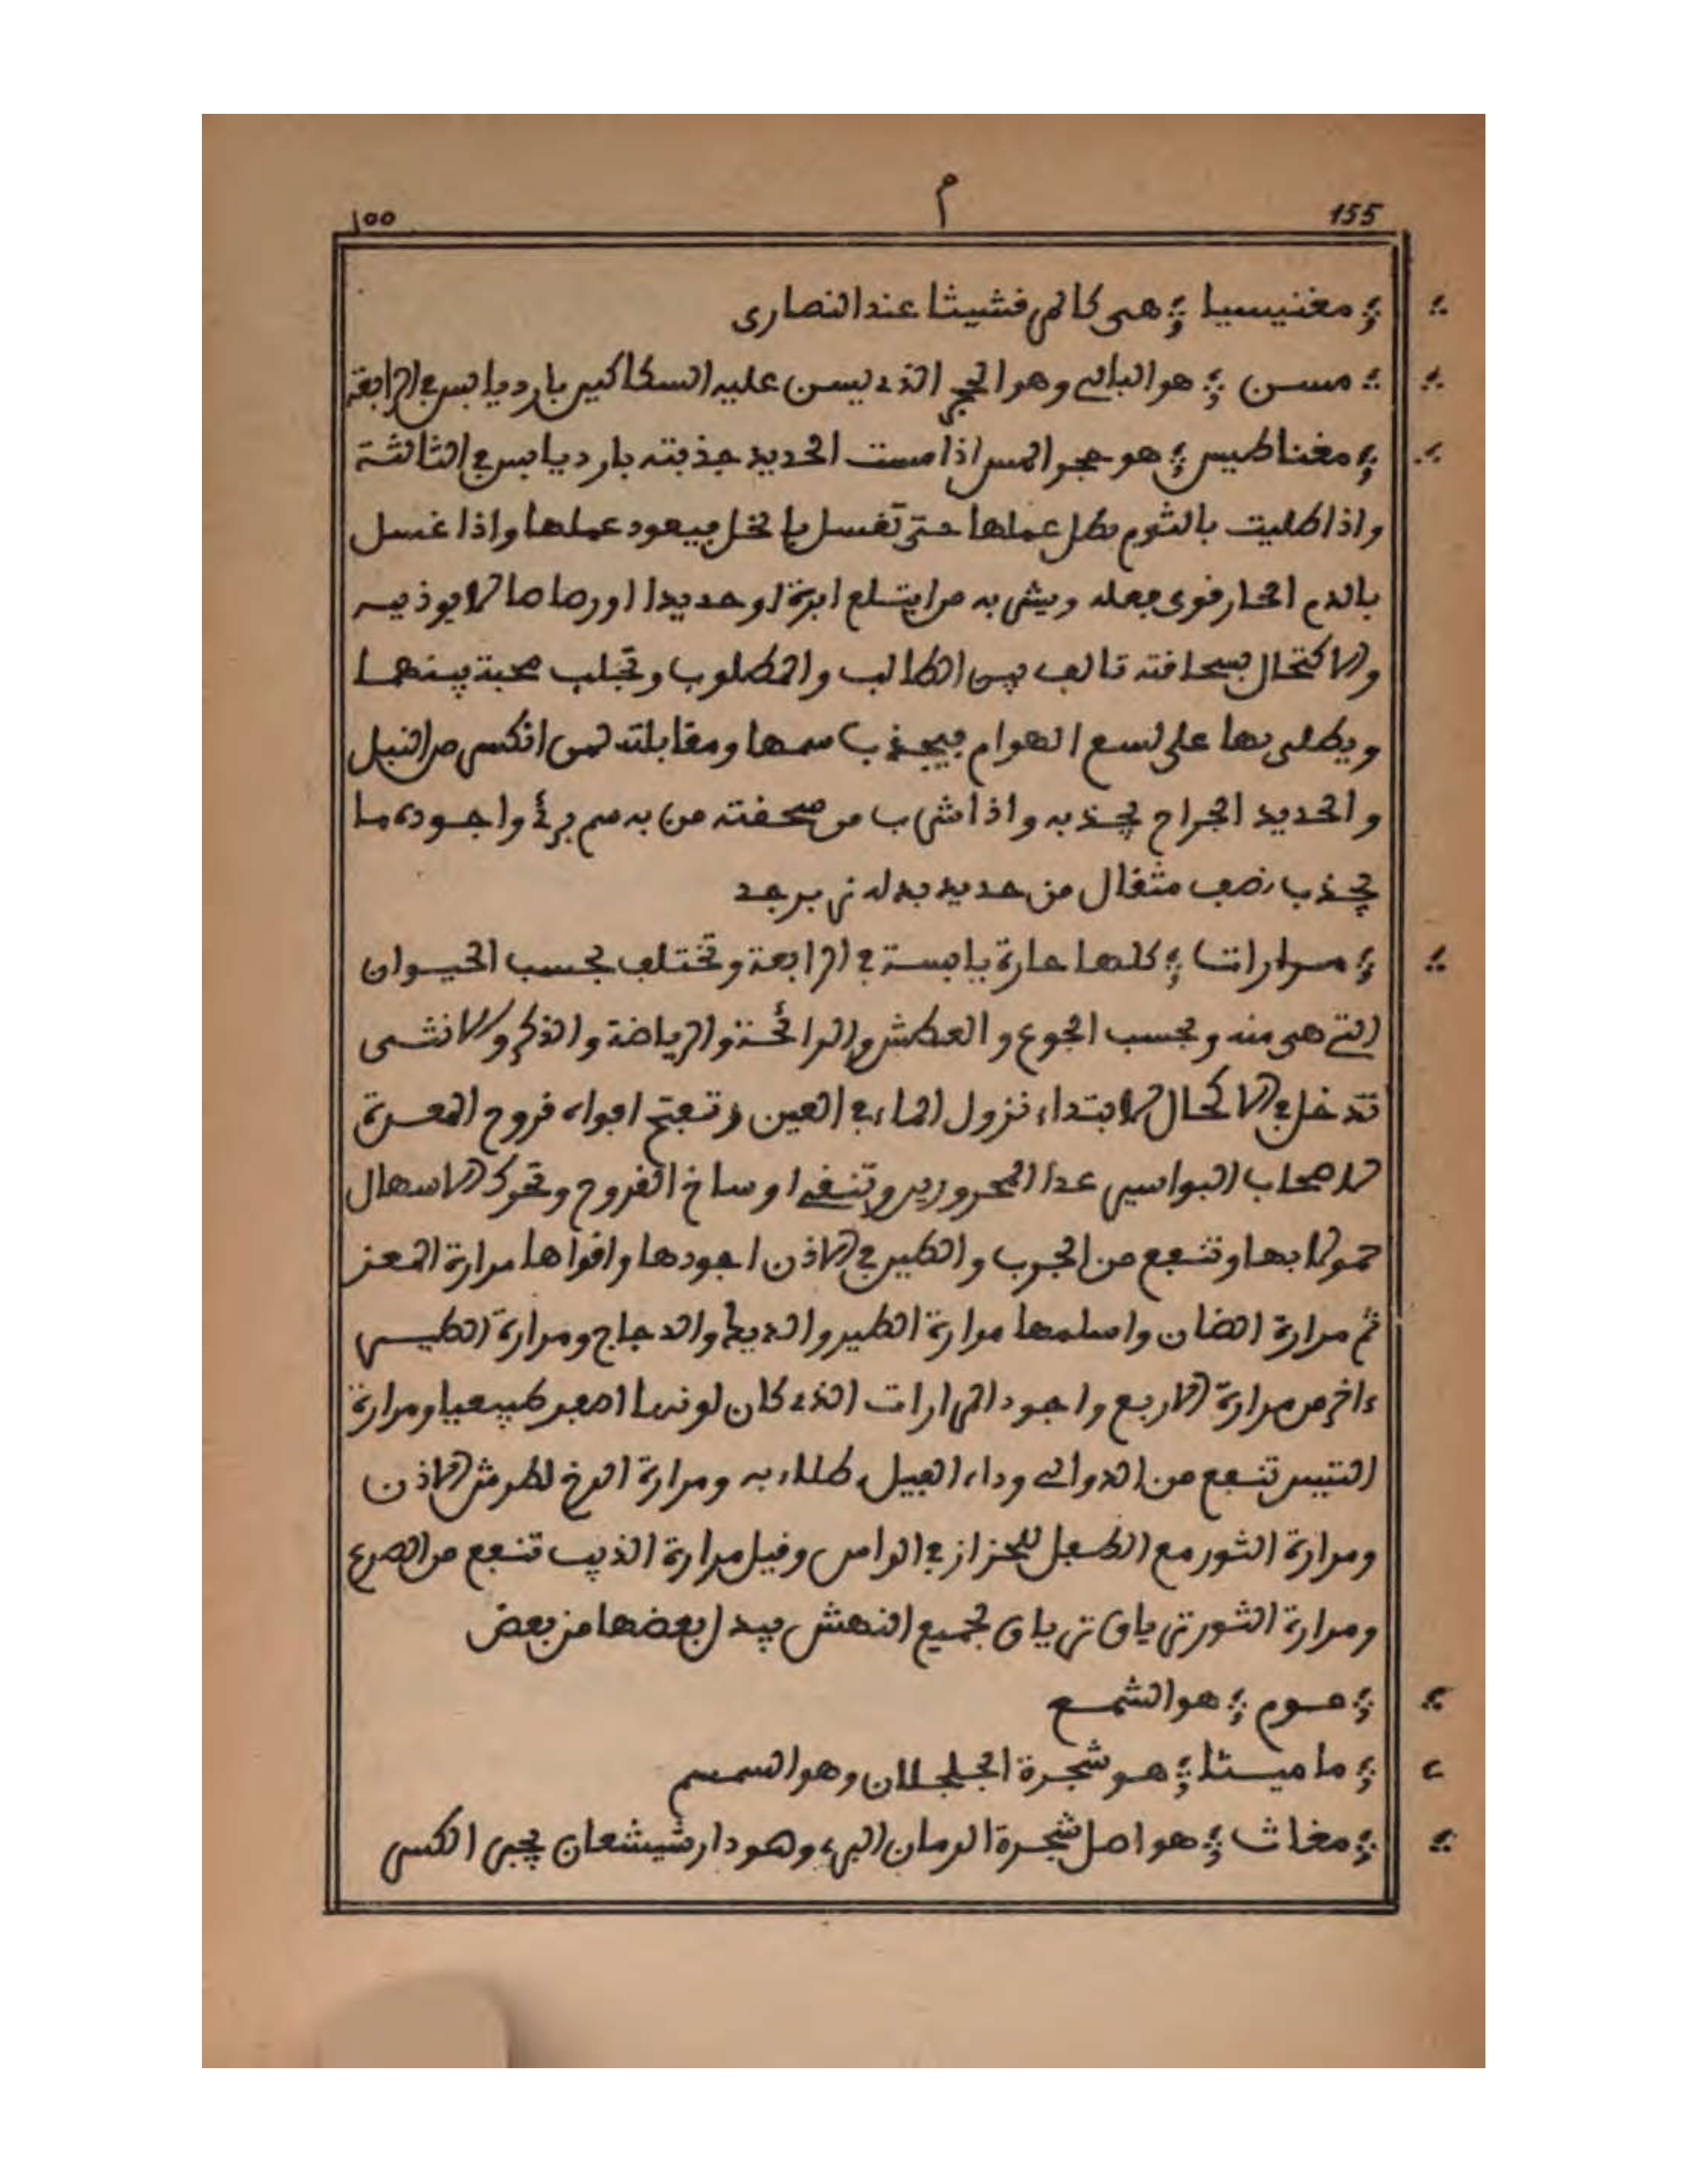 155 م ١٥٥
؞ مغنيسيا ؞ هى كالمرقشيثا عند النصارى
؞ مسن ؞ هو البالى وهو الحجر الذى يسن عليه السكاكين بارد يابس في الرابعة
؞ مغناطيس ؞ هو حجر المس اذا مست الحديد جذبته بارد يابس في الثالثة
واذا طليت بالثوم بطل عملها حتى تغسل بالخل فيعود عملها واذا غسل
بالدم الحار قوى فعله ويشرب من ابتلع ابرة او حديدا او رصاصا لا يوذيه
والاكتحال بسحافته تالف بين الطالب والمطلوب وتجلب محبة بينهما
ويطلى بها على لسع الهوام فيجذب سمها ومقابلته لمن انكسر من النبل
والحديد الجراح يجذبه واذا شرب من صحفته من به سم برئ واجوده ما
يجذب نصف مثقال من حديد بدله زبرجد
؞ مرارات ؞ كلها حارة يابسة في الرابعة وتختلف بحسب الحيوان
التي هى منه وبحسب الجوع والعطش والرائحة والرياضة والذكر والانثى
تدخل في الاكحال لابتداء نزول الماء في العين وتفتح افواه قروح المعدة
لاصحاب البواسير عدا المحرورين وتنقى اوساخ القروح وتحرك الاسهال
حمولا بها وتنفع من الجرب والطير في الاذن اجودها واقواها مرارة المعز
ثم مرارة الضان واسلمها مرارة الطير والديك والدجاج ومرارة الطيس
ءاخر من مرارة الاربع واجود المرارات الذى كان لونها اصفر طبيعيا ومرارة
التيس تنفع من الدوالى وداء الفيل طلاء به ومرارة الرخ لطرش الاذن
ومرارة الثور مع الطفل للحزاز في الراس وقيل مرارة الذيب تنفع من الصرع
ومرارة الثور ترياق ترياق لجميع النهش يبدل بعضها من بعض
؞ موم ؞ هو الشمع
؞ ماميثا ؞ هو شجرة الجلجلان وهو السمسم
؞ مغاث ؞ هو اصل شجرة الرمان البرى وهو دارشيشعان يجبر الكسر